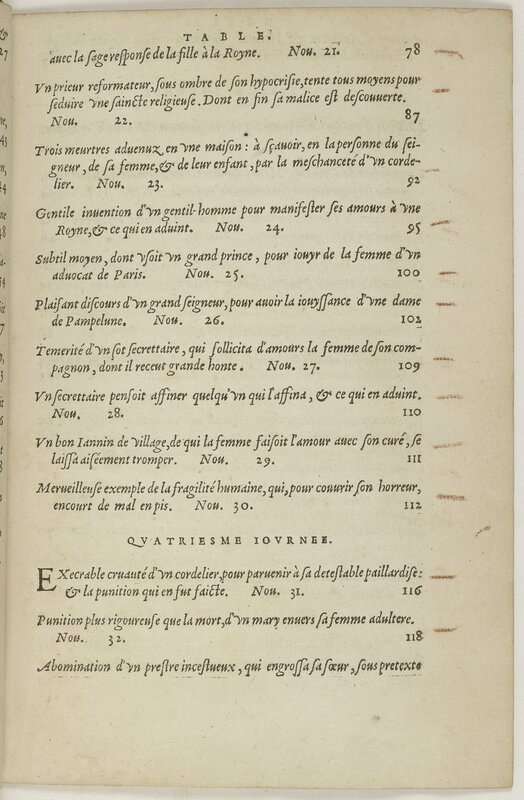 TABLE.
auec la sage response de la fille à la Royne. Nou. 21. 78
Vn prieur reformateur, sous ombre de son hypocrisie, tente tous moyens pour
seduire vne saincte religieuse. Dont en fin sa malice est descouuerte.
Nou. 22. 87
Trois meurtres aduenuz en vne maison : à sçauoir, en la personne du sei-
gneur, de sa femme, & de leur enfant, par la meschanceté d'vn corde-
lier. Nou. 23. 92
Gentile inuention d'vn gentil-homme pour manifester ses amours à vne
Royne, & ce qui en aduint. Nou. 24. 95
Subtil moyen, dont vsoit vn grand prince, pour iouyr de la femme d'vn
aduocat de Paris. Nou. 25. 100
Plaisant discours d'vn grand seigneur, pour auoir la iouyssance d'vne dame
de Pampelune. Nou. 26. 102
Temerité d'vn sot secrettaire, qui sollicita d'amours la femme de son com-
pagnon, dont il receut grande honte. Nou. 27. 109
Vn secrettaire pensoit affiner quelqu'vn qui l'affina, & ce qui en aduint.
Nou. 28. 110
Vn bon Iannin de village, de qui la femme faisoit l'amour auec son curé, se
laissa aiséement tromper. Nou. 29. 111
Merueilleuse exemple de la fragilité humaine, qui, pour couurir son horreur,
encourt de mal en pis. Nou. 30. 112
QVATRIESME IOVRNEE.
EXecrable cruauté d'vn cordelier, pour paruenir à sa detestable paillardise:
& la punition qui en fut faicte. Nou. 31. 116
Punition plus rigoureuse que la mort, d'vn mary enuers sa femme adultere.
Nou. 32. 118
Abomination d'vn prestre incestueux, qui engrossa sa sœur, sous pretexte